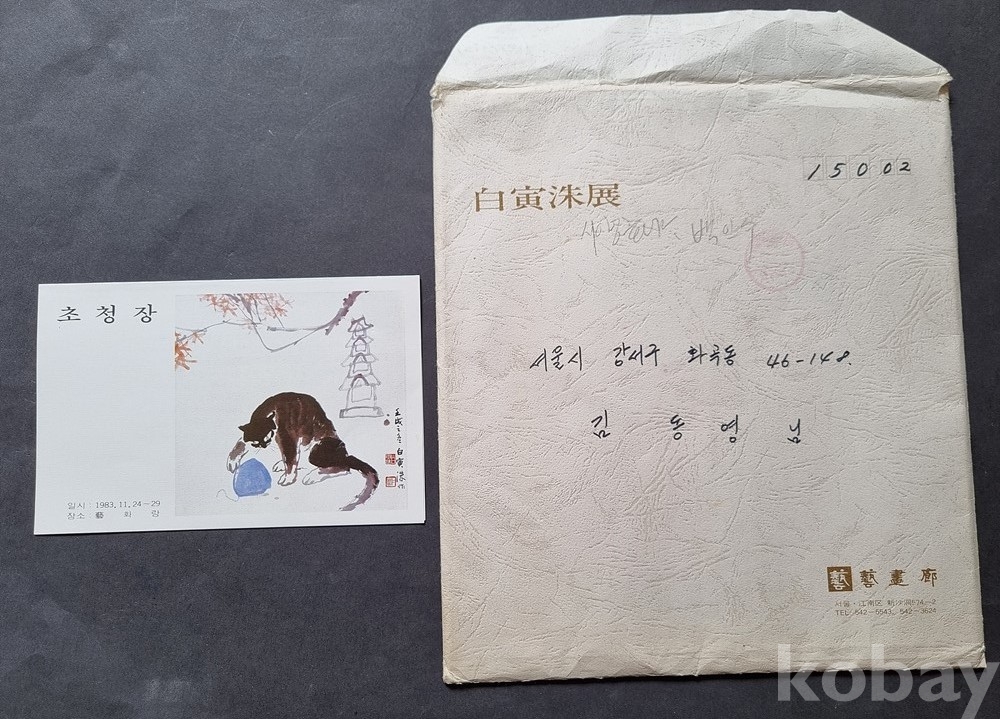 초 청 장
壬戌之冬
白寅洙作
일시 : 1983. 11. 24~29
장소 : 藝 화 랑
15002
白寅洙展
백인수
서울시 강서구 화곡동 46-148.
김 동 영 님
藝 藝畫廊
서울·江南区 新沙洞574-2
TEL: 542-5543, 542-3624
kobay